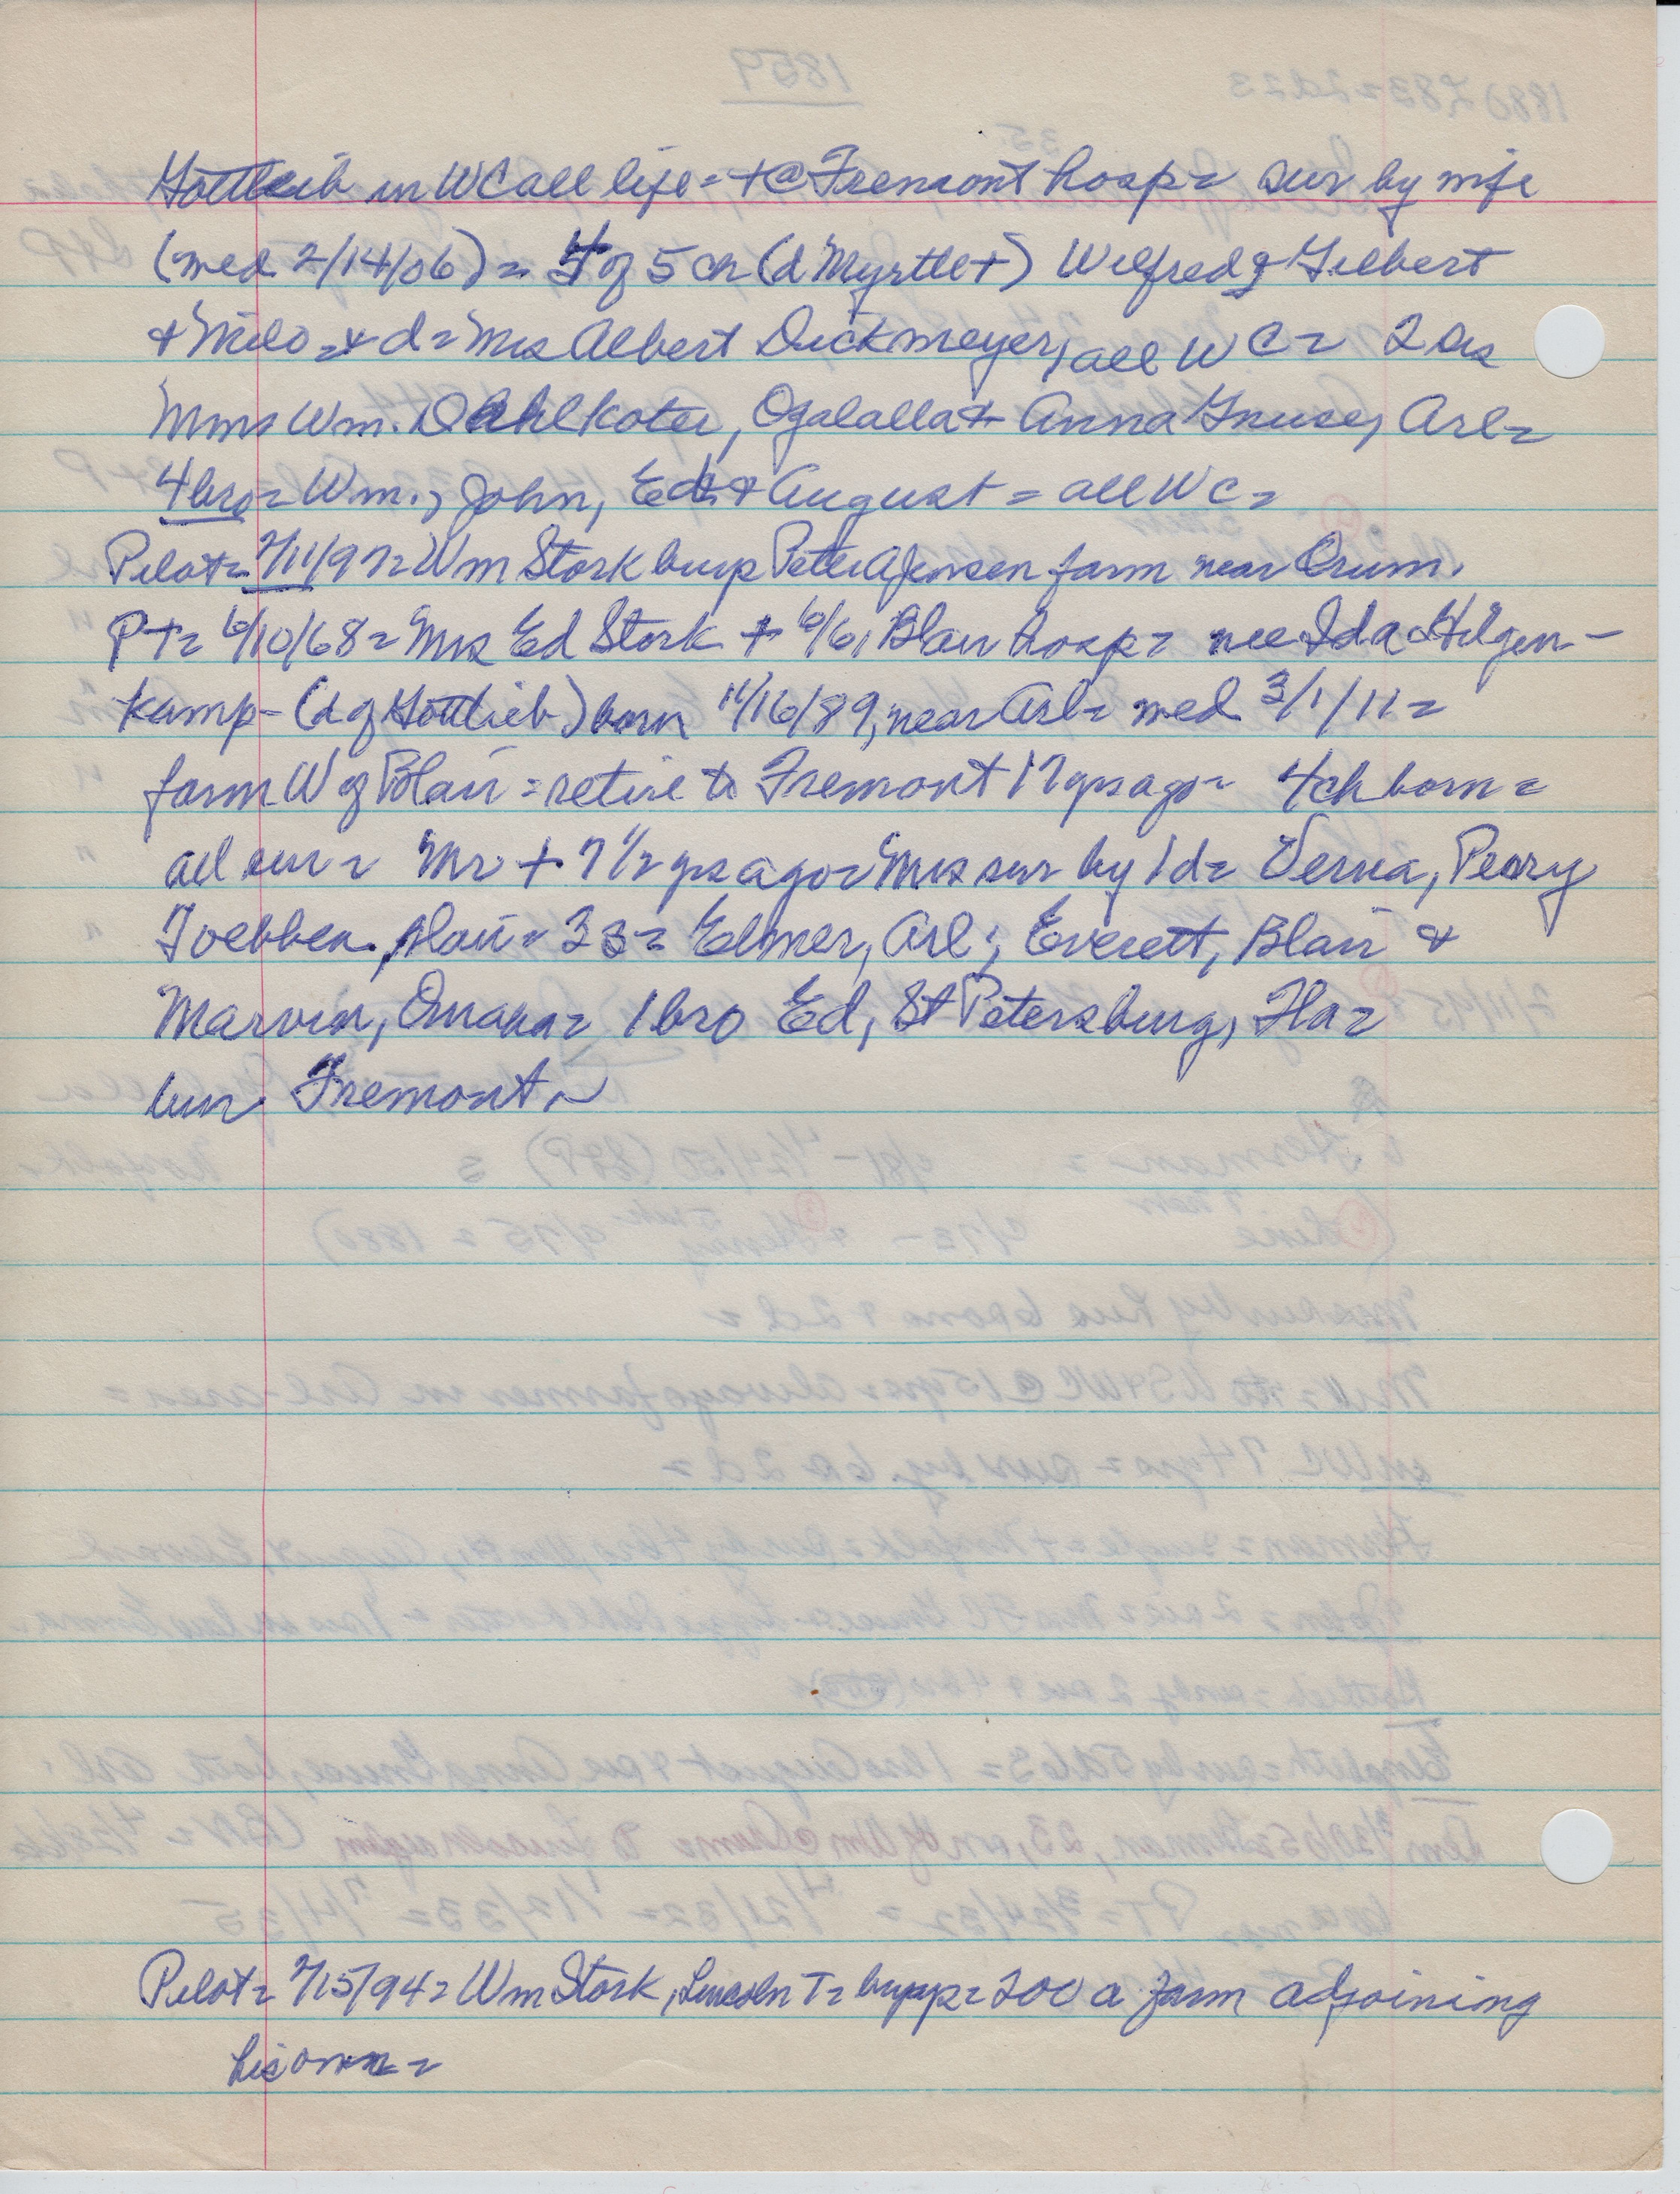 Gottlieb in WC all life = + @ Fremont hosp = sur by wife
(med 2/14/06) = 4 of 5 ch (d Myrtle +) Wilfred & Gilbert
& Milo = & d = Mrs Albert Dickmeyer, all WC = 2 sis
Mms Wm. Dahlkoter, Ogalalla & Anna Gnuse, Arl =
4 bro = Wm., John, Ed & August = all WC =
Pilot = 2/11/97 = Wm Stork buys Peter A Jensen farm near Orum.
PT = 6/10/68 = Mrs Ed Stork + 6/6, Blair hosp = nee Ida Hilgen-
kamp - (d of Gottlieb) born 11/16/89, near Arl = med 3/1/11 =
farm W of Blair = retire to Fremont 17 yrs ago = 4 ch born =
all sur = Mr + 7 1/2 yrs ago = Mrs sur by 1 d = Verna, Perry
Toebben, Blair = 3 s = Elmer, Arl; Everett, Blair &
Marvin, Omaha = 1 bro Ed, St Petersburg, Fla =
bur Fremont ~
Pilot = 2/15/94 = Wm Stork, Lincoln T = buys = 200 a farm adjoining
his own =